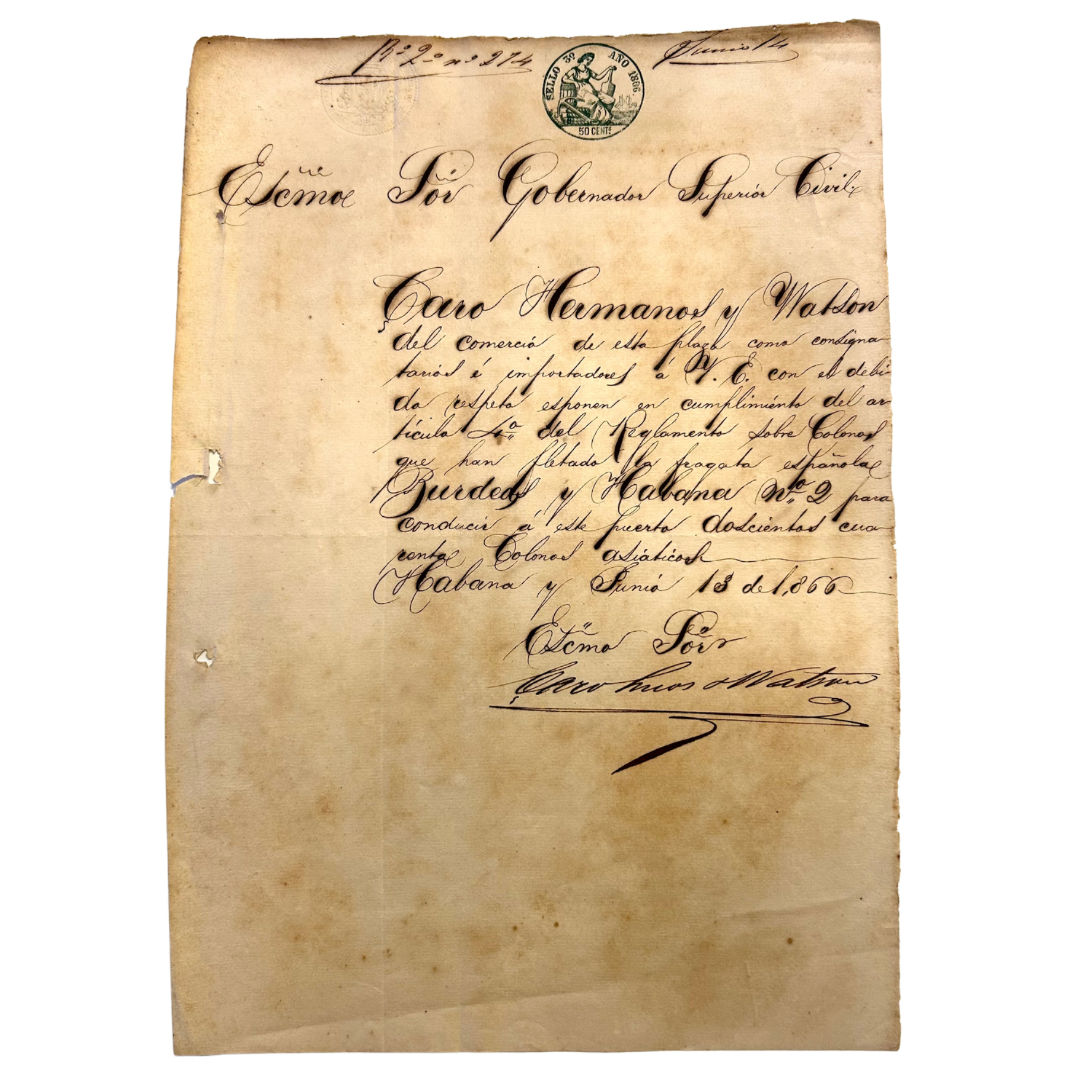 Rº 2º nº 274
Junio 14
SELLO 3º AÑO 1866.
50 CENTS
Escmo Sõr Gobernador Superiór Civil
Çaro Hermanos y Watson
del comercio de esta plaza como consigna
tarios é importadores á V. E. con el debi
do respeto esponen en cumplimiénto del ar
ticulo 4º del Reglamento sobre Colonos
que han fletado la fragata española
Burdeos y Habana Nº 2 para
conducir á este puerto doscientos cua
renta Colonos asiáticos
Habana y Junió 13 de 1,866
Escmo Sõr
Çaro hnos & Watson